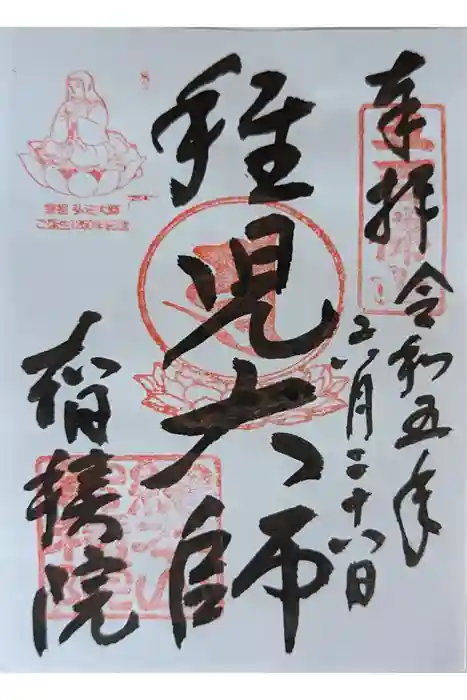 奉拝
令和五年
六月二十八日
稚児大師
宗祖 弘法大師
ご誕生1250年記念
院